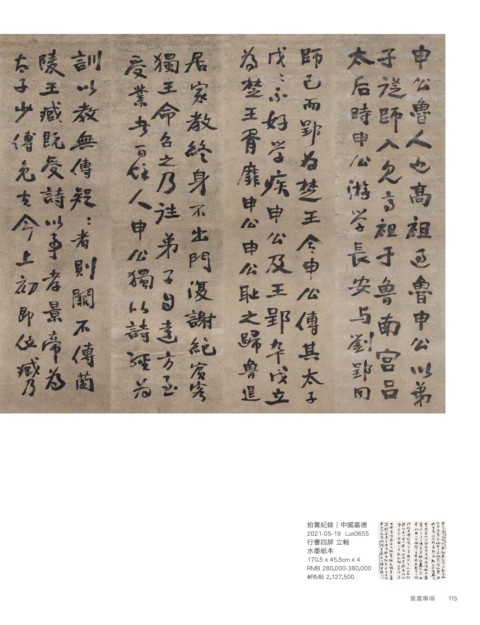 申公魯人也高祖過魯申公以弟
子從師入見高祖于魯南宮呂
太后時申公游学長安与劉郢同
師已而郢為楚王令申公傅其太子
戊戊不好学疾申公及王郢卒戊立
為楚王胥靡申公申公恥之歸魯退
居家教終身不出門復謝絕賓客
獨王命召之乃往弟子自遠方至
受業者百餘人申公獨以詩經為
訓以教無傳疑疑者則闕不傳蘭
陵王臧既受詩以事孝景帝為
太子少傅免去今上初即位臧乃
拍賣紀錄｜中國嘉德
2021-05-19 Lot0655
行書四屏 立軸
水墨紙本
170.5 x 45.5cm x 4
RMB 280,000-380,000
#RMB 2,127,500
書畫專場 115